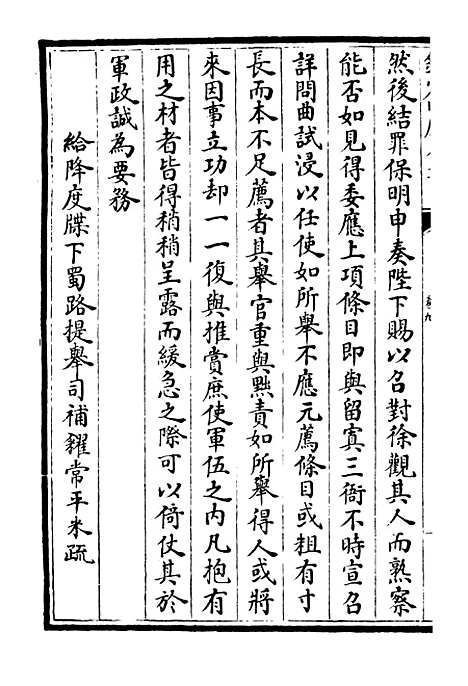 然後結罪保明申奏陛下賜以召對徐觀其人而熟察
能否如見得委應上項條目即與留寘三衙不時宣召
詳問曲試浸以任使如所舉不應元薦條目或粗有寸
長而本不足薦者其舉官重與黜責如所舉得人或將
來因事立功却一一復與推賞庶使軍伍之内凡抱有
用之材者皆得稍稍呈露而緩急之際可以倚仗其於
軍政誠為要務
給降度牒下蜀路提舉司補糴常平米疏